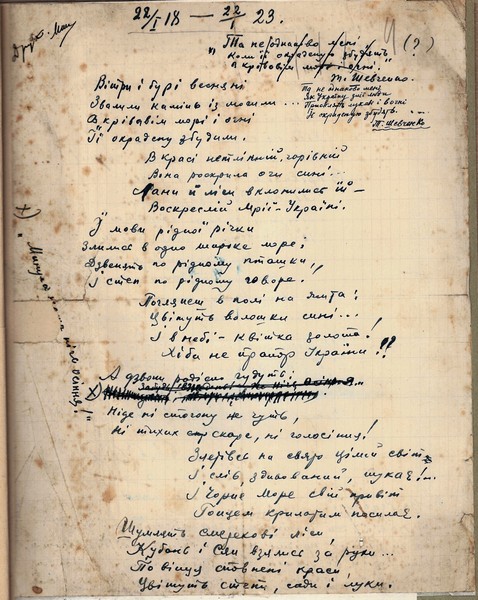 22/I 18 — 22/I 23.
Друк. Маш.
Та не однаково мені
Коли її окрадену збудять
в кровавім морі і огні."
Т. Шевченко
(?)
Та не однаково мені,
Як Україну злії люди
Присплять, лукаві, і в огні
Її, окраденую, збудять...
Т. Шевченко
Вітри і бурі весняні
Звалили камінь із могили...
В крівавім морі і огні
Її окрадену збудили.
В красі нетлінній, горівній
Вона розкрила очи сині...
Лани й ліси вклонились їй —
Воскреслій Мрії-Україні.
У мови рідної річки
Злились в одно широке море;
Дзвенять по рідному пташки,
І степ по рідному говоре.
Поглянеш в полі на жита:
Цвітуть волошки сині...
І в небі - квітка золота!
Хіба не прапор України?!
А дзвони радісно гудуть:
х) "Минулась наша ніч осіння!"
Ніде ні стогону не чуть,
Ні тихих скарг, ні голосіння!
Злетівсь на свято цілий світ
І слів здивований, шукає!..
І Чорне Море свій привіт
Гонцем крилатим посилає.
Шумлять смерекові ліси,
Кубань і Сян взялись за руки...
По вінця сповнені краси,
Цвітуть степи, сади і луки.